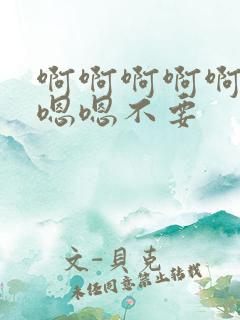 啊啊啊啊啊
嗯嗯不要
文-貝克
未经同意禁止转载